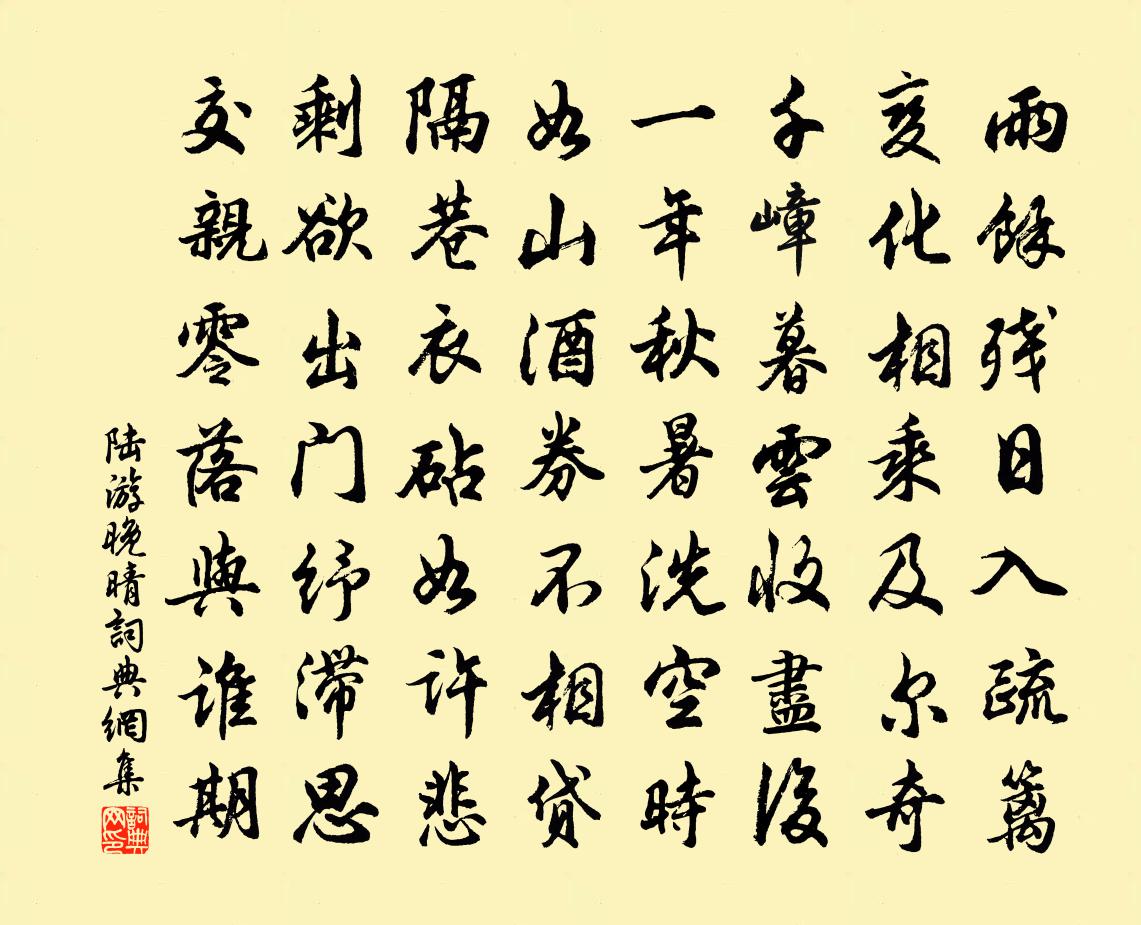 雨餘残日入疏籬
变化相乘及尔奇
千嶂暮雲收盡後
一年秋暑洗空時
如山酒券不相貸
隔巷衣砧如许悲
剩欲出门纾滞思
交親零落與誰期
陆游晚晴詞典網集
詞典网印